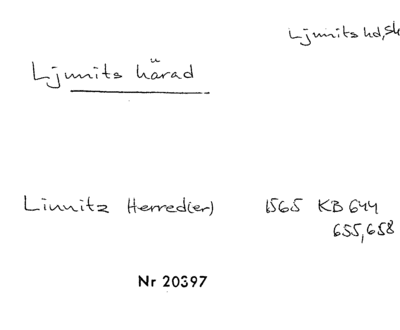 Ljunits hd, Sk
Ljunits härad
Linnitz Herred(er) 1565 KB 644
655, 658
Nr 20397